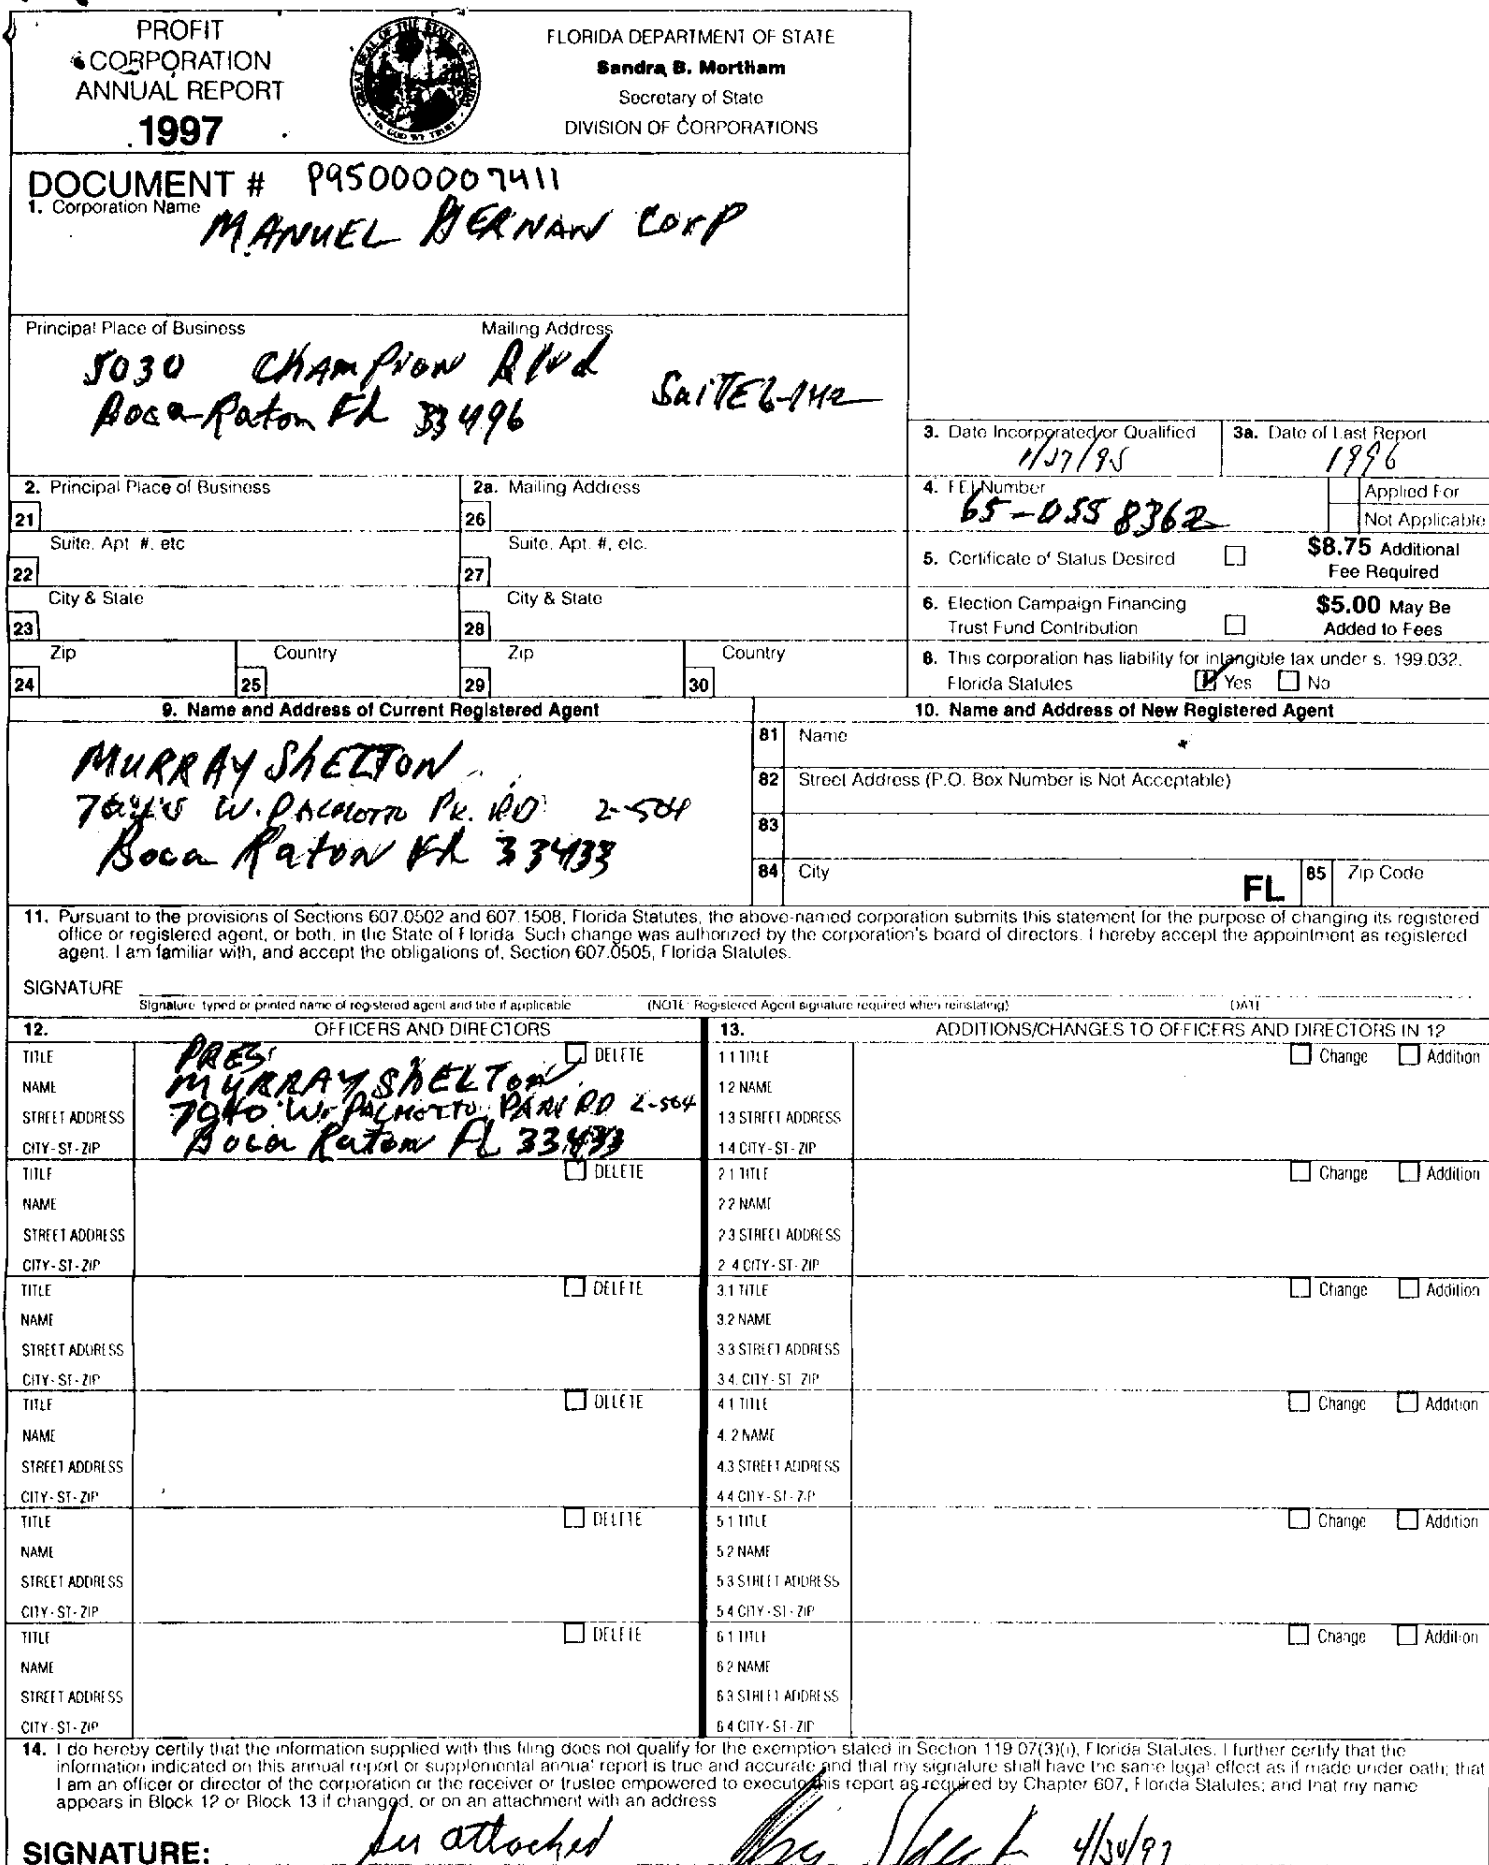 PROFIT
CORPORATION
ANNUAL REPORT
1997
GREAT SEAL OF THE STATE OF FLORIDA
IN GOD WE TRUST
FLORIDA DEPARTMENT OF STATE
Sandra B. Mortham
Secretary of State
DIVISION OF CORPORATIONS
DOCUMENT # P95000007411
1. Corporation Name
MANUEL BERNAN CORP
Principal Place of Business Mailing Address
5030 CHAMPION Blvd
Boca-Raton FL 33496
3. Date Incorporated or Qualified
1/27/95
3a. Date of Last Report
1996
2. Principal Place of Business
21
Suite, Apt #, etc
22
City & State
23
Zip
24
Country
25
2a. Mailing Address
26
Suite, Apt. #, etc.
27
City & State
28
Zip
29
Country
30
4. FEI Number
65-0558362
Applied For
Not Applicable
5. Certificate of Status Desired
$8.75 Additional
Fee Required
6. Election Campaign Financing
Trust Fund Contribution
$5.00 May Be
Added to Fees
8. This corporation has liability for intangible tax under s. 199.032,
Florida Statutes Yes No
9. Name and Address of Current Registered Agent
MURRAY SHELTON
W. PALMOTTO PK. RD 2-504
Boca Raton FL 33433
10. Name and Address of New Registered Agent
81 Name
82 Street Address (P.O. Box Number is Not Acceptable)
83
84 City
FL
85 Zip Code
11. Pursuant to the provisions of Sections 607.0502 and 607.1508, Florida Statutes, the above-named corporation submits this statement for the purpose of changing its registered
office or registered agent, or both, in the State of Florida. Such change was authorized by the corporation's board of directors. I hereby accept the appointment as registered
agent. I am familiar with, and accept the obligations of, Section 607.0505, Florida Statutes.
SIGNATURE
Signature typed or printed name of registered agent and title if applicable (NOTE: Registered Agent signature required when reinstating) DATE
12. OFFICERS AND DIRECTORS
TITLE PRES DELETE
NAME MURRAY SHELTON
STREET ADDRESS 7040 W. PALMOTTO PARK RD 2-504
CITY-ST-ZIP Boca Raton FL 33433
TITLE DELETE
NAME
STREET ADDRESS
CITY-ST-ZIP
TITLE DELETE
NAME
STREET ADDRESS
CITY-ST-ZIP
TITLE DELETE
NAME
STREET ADDRESS
CITY-ST-ZIP
TITLE DELETE
NAME
STREET ADDRESS
CITY-ST-ZIP
TITLE DELETE
NAME
STREET ADDRESS
CITY-ST-ZIP
13. ADDITIONS/CHANGES TO OFFICERS AND DIRECTORS IN 12
1.1 TITLE Change Addition
1.2 NAME
1.3 STREET ADDRESS
1.4 CITY-ST-ZIP
2.1 TITLE Change Addition
2.2 NAME
2.3 STREET ADDRESS
2.4 CITY-ST-ZIP
3.1 TITLE Change Addition
3.2 NAME
3.3 STREET ADDRESS
3.4. CITY-ST-ZIP
4.1 TITLE Change Addition
4.2 NAME
4.3 STREET ADDRESS
4.4 CITY-ST-ZIP
5.1 TITLE Change Addition
5.2 NAME
5.3 STREET ADDRESS
5.4 CITY-ST-ZIP
6.1 TITLE Change Addition
6.2 NAME
6.3 STREET ADDRESS
6.4 CITY-ST-ZIP
14. I do hereby certify that the information supplied with this filing does not qualify for the exemption stated in Section 119.07(3)(i), Florida Statutes. I further certify that the
information indicated on this annual report or supplemental annual report is true and accurate and that my signature shall have the same legal effect as if made under oath; that
I am an officer or director of the corporation or the receiver or trustee empowered to execute this report as required by Chapter 607, Florida Statutes; and that my name
appears in Block 12 or Block 13 if changed, or on an attachment with an address
SIGNATURE: attached 4/30/97